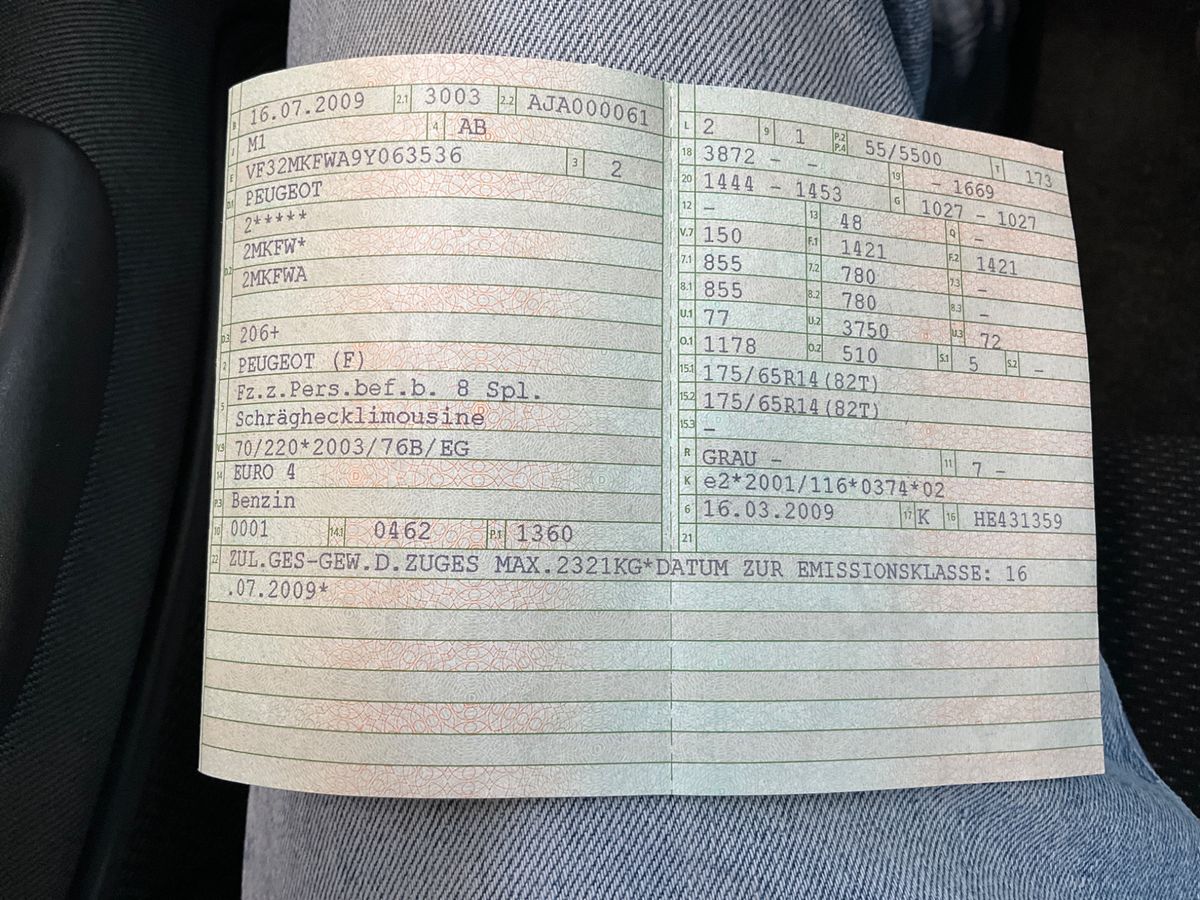 B 16.07.2009 2.1 3003 2.2 AJA000061
J M1 4 AB
E VF32MKFWA9Y063536 3 2
D.1 PEUGEOT
2*****
D.2 2MKFW*
2MKFWA
D.3 206+
2 PEUGEOT (F)
5 Fz.z.Pers.bef.b. 8 Spl.
Schräghecklimousine
V.9 70/220*2003/76B/EG
14 EURO 4
P.3 Benzin
10 0001 14.1 0462 P.1 1360
L 2 9 1 P.2 P.4 55/5500 T 173
18 3872 - - 19 - 1669
20 1444 - 1453 G 1027 - 1027
12 - 13 48 Q -
V.7 150 F.1 1421 F.2 1421
7.1 855 7.2 780 7.3 -
8.1 855 8.2 780 8.3 -
U.1 77 U.2 3750 U.3 72
O.1 1178 O.2 510 S.1 5 S.2 -
15.1 175/65R14(82T)
15.2 175/65R14(82T)
15.3 -
R GRAU - 11 7 -
K e2*2001/116*0374*02
6 16.03.2009 17 K 16 HE431359
21
22 ZUL.GES-GEW.D.ZUGES MAX.2321KG*DATUM ZUR EMISSIONSKLASSE: 16
.07.2009*